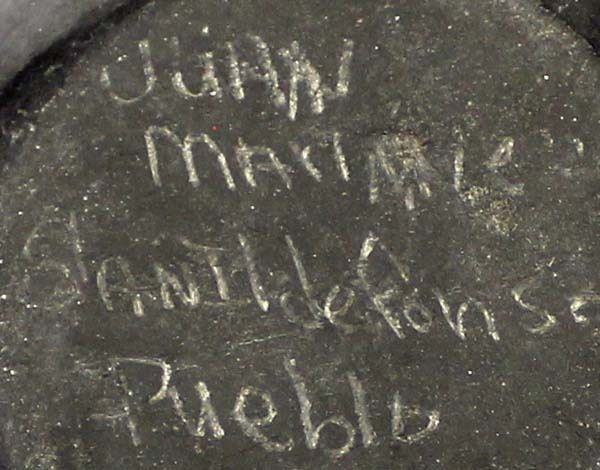 JUAN
San Ildefonso
Pueblo